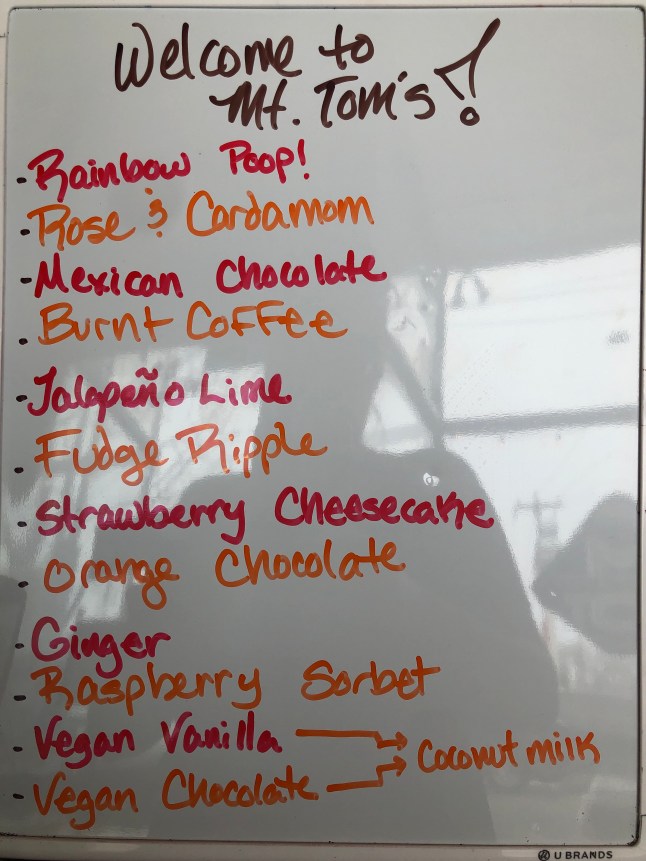 Welcome to
Mt. Tom's!
- Rainbow Poop!
- Rose & Cardamom
- Mexican Chocolate
- Burnt Coffee
- Jalapeño Lime
- Fudge Ripple
- Strawberry Cheesecake
- Orange Chocolate
- Ginger
- Raspberry Sorbet
- Vegan Vanilla → Coconut milk
- Vegan Chocolate →
U BRANDS